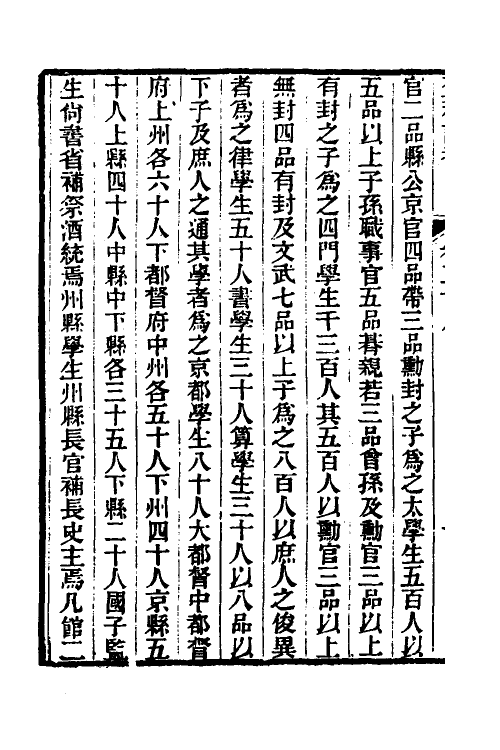 官二品縣公京官四品帶三品勳封之子爲之太學生五百人以
五品以上子孫職事官五品朞親若三品曾孫及勳官三品以上
有封之子爲之四門學生千三百人其五百人以勳官三品以上
無封四品有封及文武七品以上子爲之八百人以庶人之俊異
者爲之律學生五十人書學生三十人算學生三十人以八品以
下子及庶人之通其學者爲之京都學生八十人大都督中都督
府上州各六十人下都督府中州各五十人下州四十人京縣五
十人上縣四十人中縣中下縣各三十五人下縣二十人國子監
生尙書省補祭酒統焉州縣學生州縣長官補長史主焉凡館二